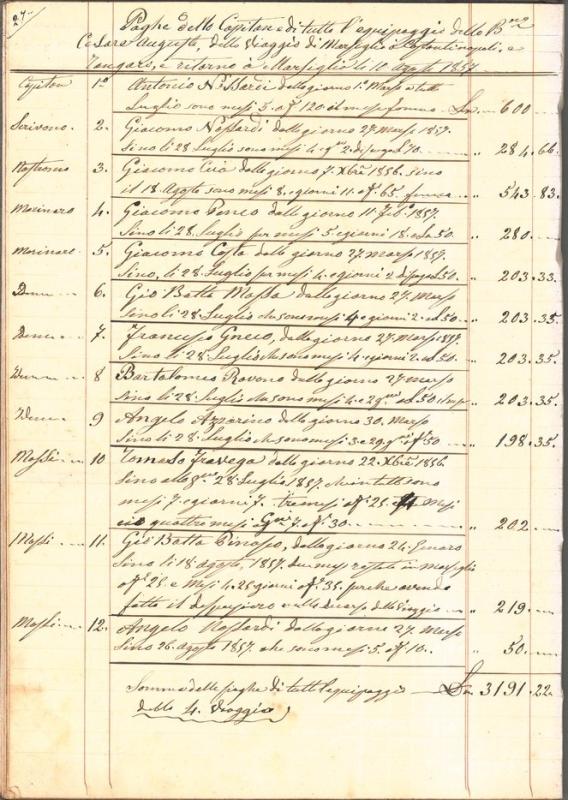 27
Paghe dello Capitano e di tutto l'equipaggio dello B.no
Cesare Augusto, dello Viaggio di Marseglia a Costantinopoli, e
e ritorno à Marseglia li 10 Agosto 1857
Capitan 1º Antonio dallo giorno 1º Marso a tutto
Luglio sono mesi 5. a f 120. il mese formano Ln. 600
Scrivano. 2. Giacomo dallo giorno 27 Marso 1857.
Sino li 28 Luglio sono mesi 4. " 284. 66.
Nostromo 3. Giacomo dallo giorno 7. Xbre 1856. Sino
il 18. Agosto sono mesi 8. e giorni 11. a f. 65. " 543. 83.
Marinaro 4. Giacomo dallo giorno 11 Feb.o 1857.
Sino li 28. Luglio per mesi 5. e giorni 18. a Ln 50. " 280.
Marinaro 5. Giacomo Costa dallo giorno 27. marso 1857.
Sino, li 28. Luglio per mesi 4. e giorni 2. 50. " 203. 33.
6. Gio Batta Massa dallo giorno 27. Marso
Sino li 28. Luglio che sono mesi 4 e giorni 2. 50. " 203. 35.
7. Francesco dallo giorno 27 Marso 1857.
Sino li 28. Luglio che sono mesi 4. e giorni 2. 50. " 203. 35.
8 Bartolomeo dallo giorno 27 marso
Sino li 28. Luglio che sono mesi 4. e 2 50 " 203. 35.
9 Angelo Azzarino dello giorno 30. Marso
Sino li 28. Luglio che sono mesi 3. e 29. 50 " 198. 35.
10 Tomaso Travega dallo giorno 22. Xbre 1856.
Sino 28 Luglio 1857.
mesi 7. e giorni 7. tre mesi a f. 25. e Mesi
quattro mesi 7. a f. 30. " 202.
11. Gio Batta dallo giorno 24. Genaro
Sino li 18. agosto, 1857. mesi in marseglia
a f. 25. e Mesi 4. 25 giorni a f. 35. perche avendo
fatto il nello dello Viaggio " 219.
12. Angelo dallo giorno 27. Marso
Sino 26. Agosto 1857. che sono mesi 5. a f. 10. " 50.
Somma delle paghe di tutto l'equipaggio Ln 3191. 22.
dello 4. Viaggio